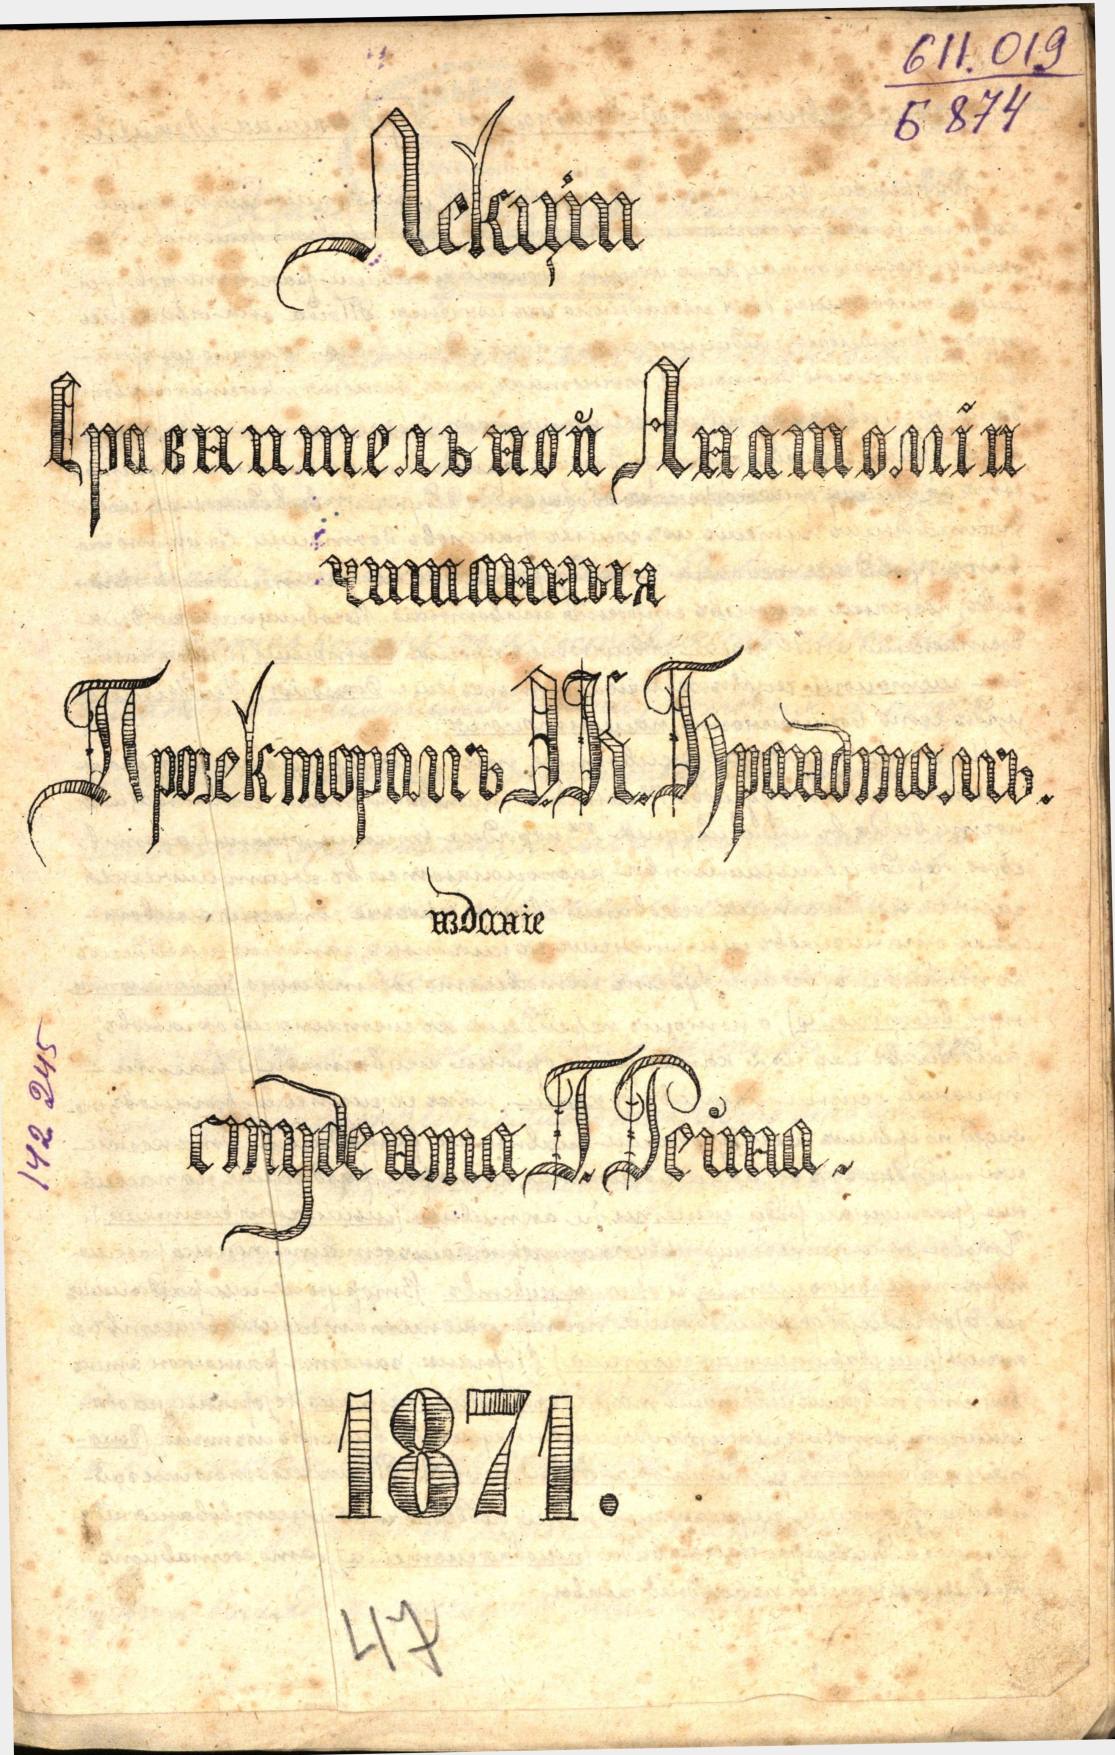 611.019
Б 874
Лекціи
Сравнительной Анатоміи
читанныя
Прозекторомъ Э. К. Брандтомъ.
изданіе
студента Г. Рейна.
142 245
1871.
47